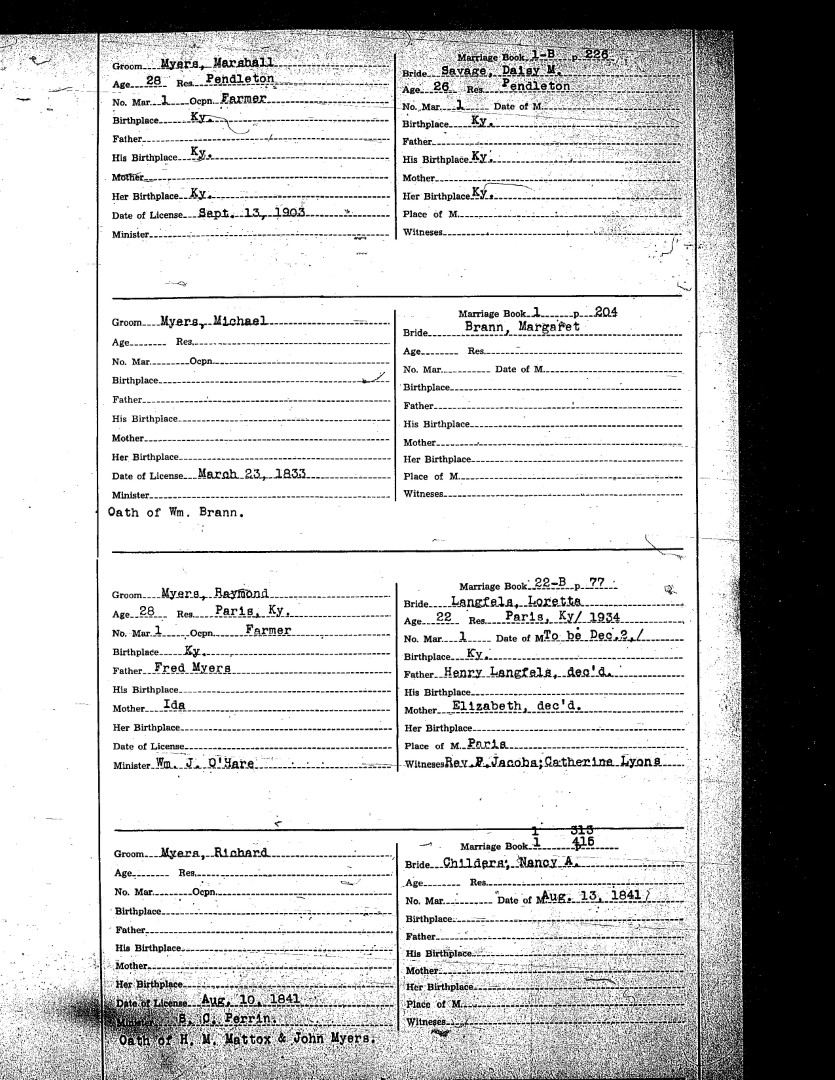 Groom Myers, Marshall
Age 28 Res Pendleton
No. Mar. 1 Ocpn. Farmer
Birthplace Ky.
Father
His Birthplace Ky.
Mother
Her Birthplace Ky.
Date of License Sept. 13, 1903
Minister
Marriage Book 1-B p. 226
Bride Savage, Daisy M.
Age 26 Res. Pendleton
No. Mar. 1 Date of M.
Birthplace Ky.
Father
His Birthplace Ky.
Mother
Her Birthplace Ky.
Place of M.
Witneses
Groom Myers, Michael
Age Res.
No. Mar. Ocpn.
Birthplace
Father
His Birthplace
Mother
Her Birthplace
Date of License March 23, 1833
Minister
Oath of Wm. Brann.
Marriage Book 1 p. 204
Bride Brann, Margaret
Age Res.
No. Mar. Date of M.
Birthplace
Father
His Birthplace
Mother
Her Birthplace
Place of M.
Witneses
Groom Myers, Raymond
Age 28 Res. Paris, Ky.
No. Mar. 1 Ocpn. Farmer
Birthplace Ky.
Father Fred Myers
His Birthplace
Mother Ida
Her Birthplace
Date of License
Minister Wm. J. O'Hare
Marriage Book 22-B p. 77
Bride Langfels, Loretta
Age 22 Res. Paris, Ky/ 1934
No. Mar. 1 Date of M To be Dec.2,/
Birthplace Ky.
Father Henry Langfels, dec'd.
His Birthplace
Mother Elizabeth, dec'd.
Her Birthplace
Place of M. Paris
Witneses Rev.F.Jacobs;Catherine Lyons
Groom Myers, Richard
Age Res.
No. Mar. Ocpn.
Birthplace
Father
His Birthplace
Mother
Her Birthplace
Date of License Aug. 10, 1841
Minister B. C. Perrin.
Oath of H. M. Mattox & John Myers.
1 313
Marriage Book 1 p. 415
Bride Childers, Nancy A.
Age Res.
No. Mar. Date of M Aug. 13, 1841
Birthplace
Father
His Birthplace
Mother
Her Birthplace
Place of M.
Witneses